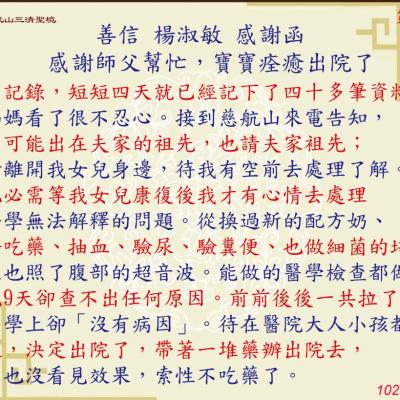 航山三清聖境
善信 楊淑敏 感謝函
感謝師父幫忙，寶寶痊癒出院了
記錄，短短四天就已經記下了四十多筆資料
媽看了很不忍心。接到慈航山來電告知，
可能出在夫家的祖先，也請夫家祖先；
離開我女兒身邊，待我有空前去處理了解。
必需等我女兒康復後我才有心情去處理
學無法解釋的問題。從換過新的配方奶、
吃藥、抽血、驗尿、驗糞便、也做細菌的培
也照了腹部的超音波。能做的醫學檢查都做
9天卻查不出任何原因。前前後後一共拉了
學上卻「沒有病因」。待在醫院大人小孩都
，決定出院了，帶著一堆藥辦出院去，
也沒看見效果，索性不吃藥了。
102